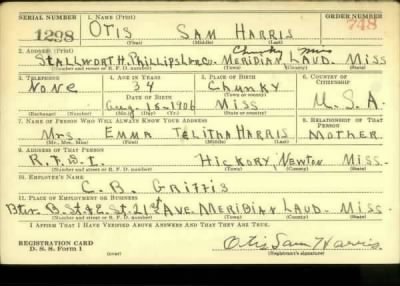 SERIAL NUMBER 1. NAME (Print) ORDER NUMBER
1298 OTIS SAM HARRIS 748
(First) (Middle) (Last)
2. ADDRESS (Print) Chunky Miss
STALLWORTH, PHILLIPS L&CO. MERIDIAN LAUD. MISS
(Number and street or R. F. D. number) (Town) (County) (State)
3. TELEPHONE 4. AGE IN YEARS 5. PLACE OF BIRTH 6. COUNTRY OF CITIZENSHIP
NONE 34 CHUNKY
DATE OF BIRTH (Town or county)
Aug 15-1906 MISS U.S.A
(Exchange) (Number) (Mo.) (Day) (Yr.) (State or country)
7. NAME OF PERSON WHO WILL ALWAYS KNOW YOUR ADDRESS 8. RELATIONSHIP OF THAT PERSON
Mrs. EMMA TELITHA HARRIS MOTHER
(Mr., Mrs., Miss) (First) (Middle) (Last)
9. ADDRESS OF THAT PERSON
R.F.D.I HICKORY, NEWTON MISS.
(Number and street or R. F. D. number) (Town) (County) (State)
10. EMPLOYER'S NAME
C. B. GRIFFIS
11. PLACE OF EMPLOYMENT OR BUSINESS
Btw. B. St & E. St. 21st AVE. MERIDIAN LAUD. MISS.
(Number and street or R. F. D. number) (Town) (County) (State)
I AFFIRM THAT I HAVE VERIFIED ABOVE ANSWERS AND THAT THEY ARE TRUE.
REGISTRATION CARD
D. S. S. Form 1 (over) Otis Sam Harris
(Registrant's signature)